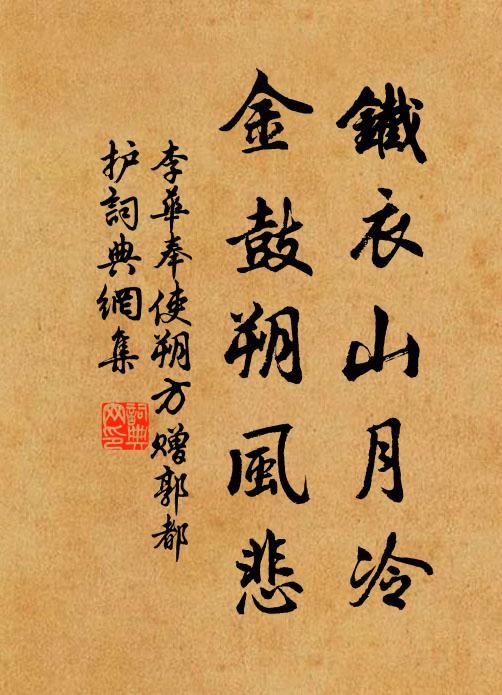 鐵衣山月冷
金鼓朔風悲
李華奉使朔方赠郭都
护詞典網集
詞典網印